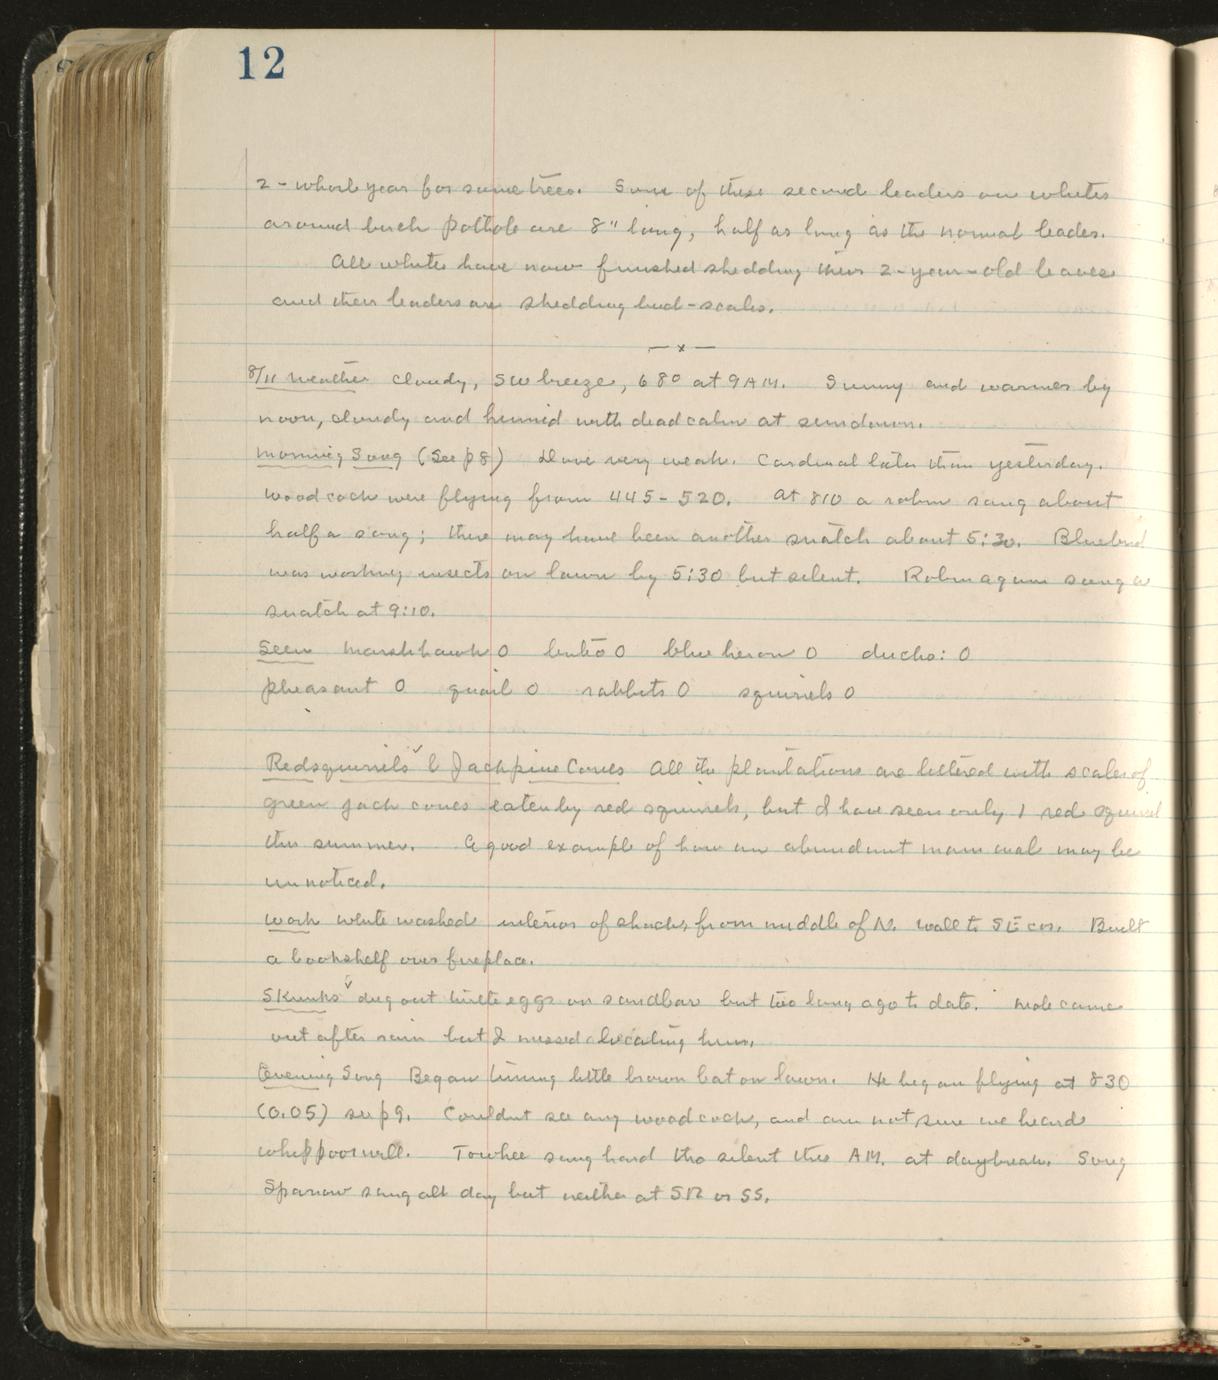 12
2-whorl year for some trees. Some of these second leaders on whites
around birch pothole are 8" long, half as long as the normal leader.
All whites have now finished shedding their 2-year-old leaves
and their leaders are shedding bud-scales.
— x —
8/11 Weather cloudy, SW breeze, 68° at 9 AM. Sunny and warmer by
noon, cloudy and humid with dead calm at sundown.
Morning Song (See p 8) Dove very weak. Cardinal later than yesterday.
Woodcock were flying from 445-520. At 810 a robin sang about
half a song; there may have been another snatch about 5:30. Bluebird
was working insects on lawn by 5:30 but silent. Robin again sang a
snatch at 9:10.
Seen Marsh hawk 0 buteo 0 blue heron 0 ducks: 0
pheasant 0 quail 0 rabbits 0 squirrels 0
Redsquirrels ✓ & Jackpine Cones All the plantations are littered with scales of
green jack cones eaten by red squirrels, but I have seen only 1 red squirrel
this summer. A good example of how an abundant mammal may be
unnoticed.
Work white washed interior of shack, from middle of N. wall to SE cor. Built
a bookshelf over fireplace.
Skunks ✓ dug out turtle eggs on sandbar but too long ago to date. Mole came
out after rain but I missed locating him.
Evening Song Began timing little brown bat on lawn. He began flying at 830
(0.05) see p9. Couldnt see any woodcock, and am not sure we heard
whippoorwill. Towhee sang hard tho silent this AM. at daybreak. Song
Sparrow sang all day but neither at SR or SS.